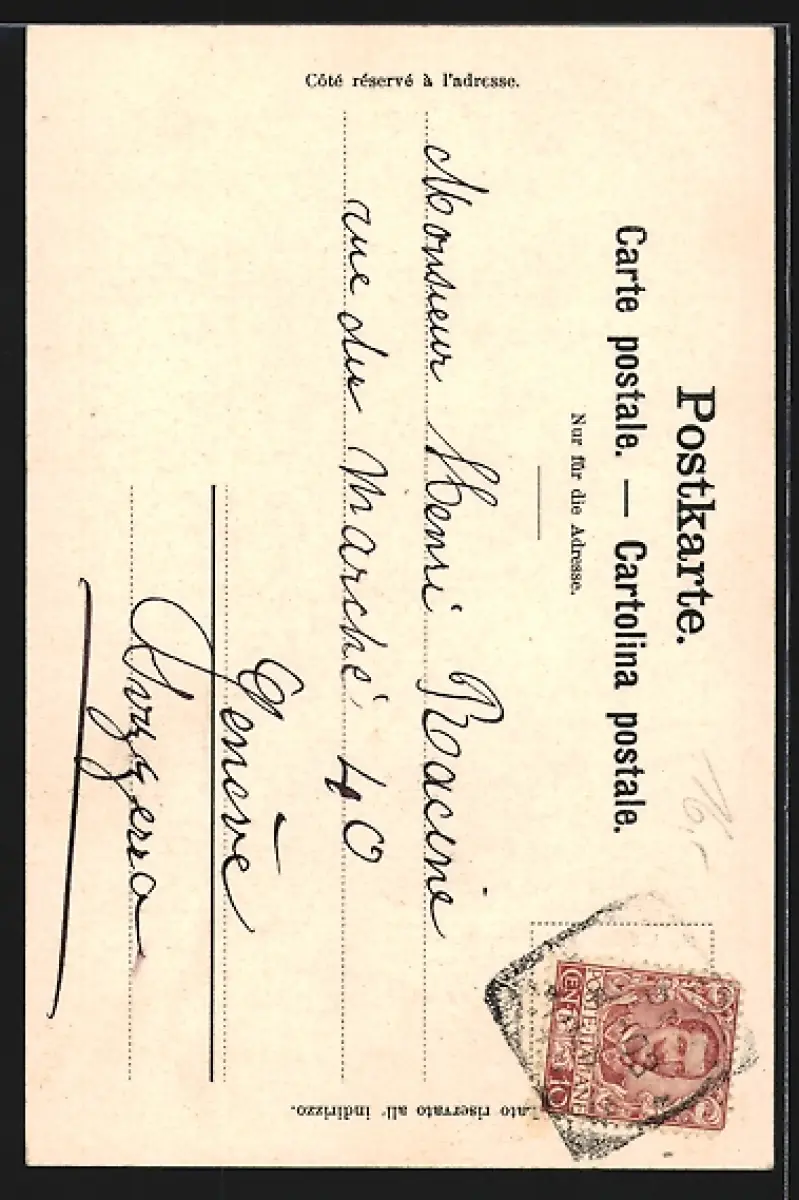 Postkarte.
Carte postale. — Cartolina postale.
Nur für die Adresse.
Côté réservé à l'adresse.
Lato riservato all' indirizzo.
Monsieur Henri Racine
rue du Marché, 40
Genève
Svizzera
16,-
POSTE ITALIANE
CENT. 10